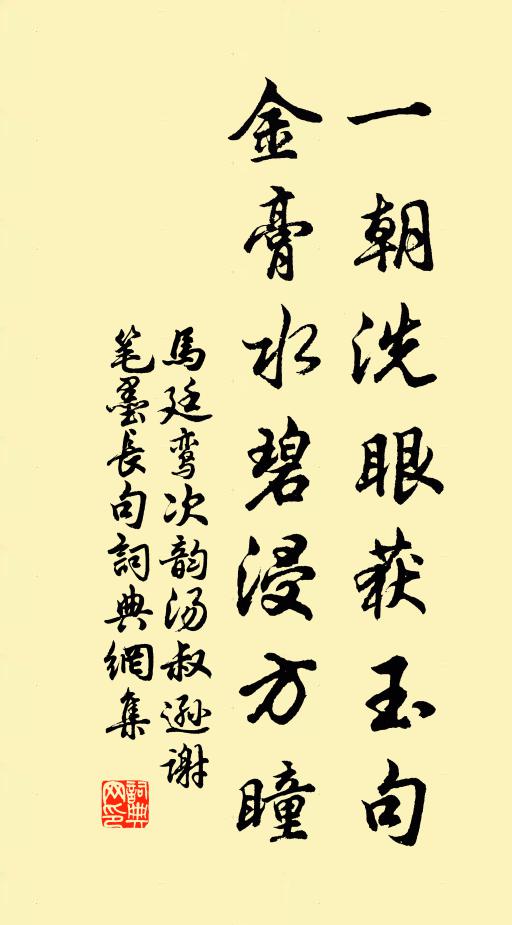 一朝洗眼获玉句
金膏水碧浸方瞳
馬廷鸾次韵汤叔逊谢
笔墨长句詞典網集
詞典网印